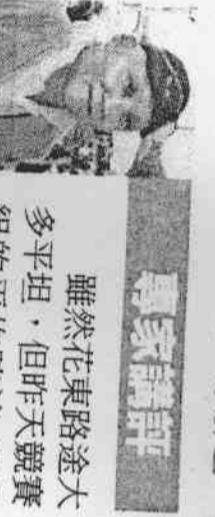 專家講評
雖然花東路途大
多平坦，但昨天競賽